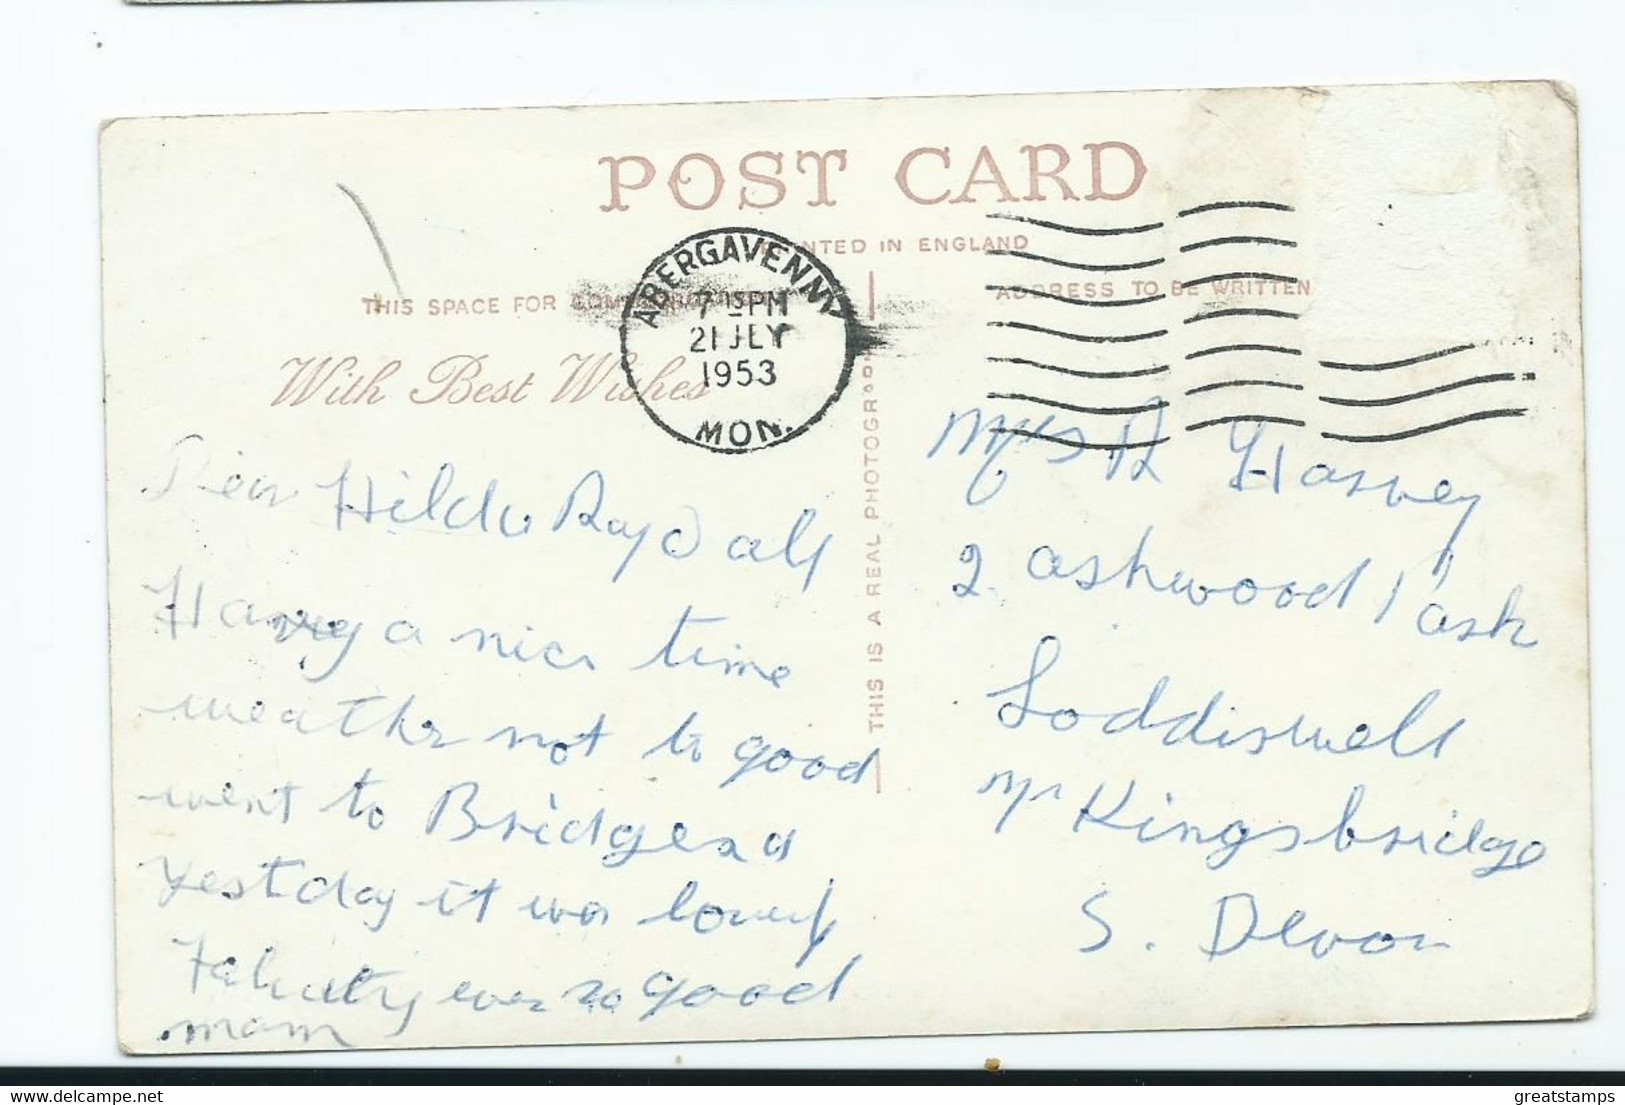 POST CARD
PRINTED IN ENGLAND
THIS SPACE FOR
ADDRESS TO BE WRITTEN
With Best Wishes
ABERGAVENNY
7 15 PM
21 JLY
1953
MON.
THIS IS A REAL PHOTOGRAPH
Dear Hilda Ray & all
Having a nice time
weather not to good
went to Bridgend
yestday it was lovely
Felicity ever so good
mam
Mrs R Harvey
2 ashwood
Loddiswell
Nr Kingsbridge
S. Devon
greatstamps